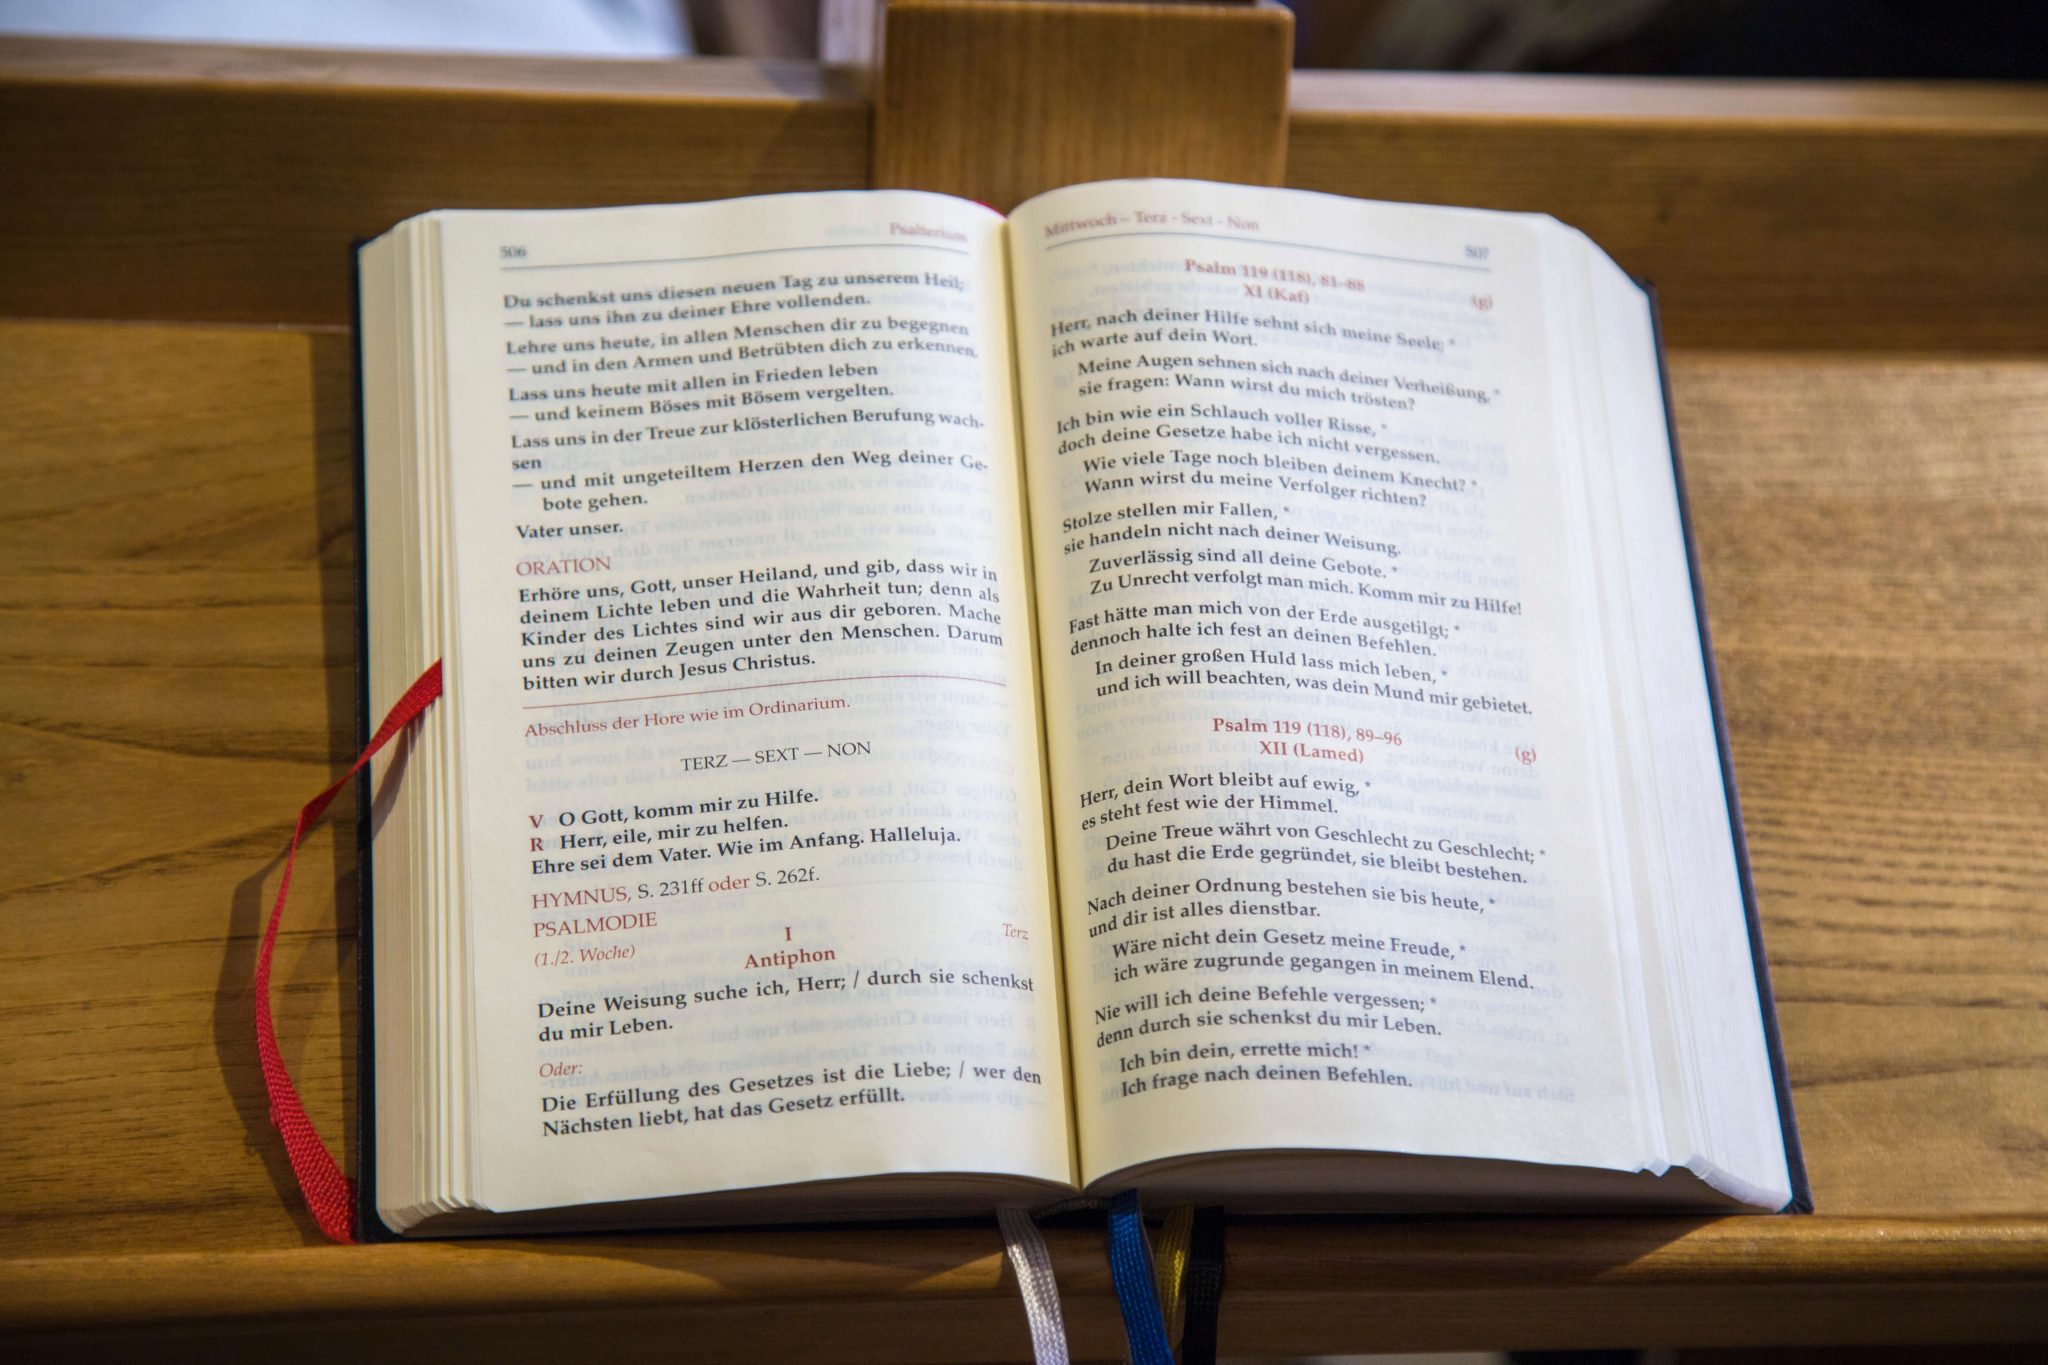 506
Psalterium
Du schenkst uns diesen neuen Tag zu unserem Heil;
— lass uns ihn zu deiner Ehre vollenden.
Lehre uns heute, in allen Menschen dir zu begegnen
— und in den Armen und Betrübten dich zu erkennen.
Lass uns heute mit allen in Frieden leben
— und keinem Böses mit Bösem vergelten.
Lass uns in der Treue zur klösterlichen Berufung wach-
sen
— und mit ungeteiltem Herzen den Weg deiner Ge-
bote gehen.
Vater unser.
ORATION
Erhöre uns, Gott, unser Heiland, und gib, dass wir in
deinem Lichte leben und die Wahrheit tun; denn als
Kinder des Lichtes sind wir aus dir geboren. Mache
uns zu deinen Zeugen unter den Menschen. Darum
bitten wir durch Jesus Christus.
Abschluss der Hore wie im Ordinarium.
TERZ — SEXT — NON
V O Gott, komm mir zu Hilfe.
R Herr, eile, mir zu helfen.
Ehre sei dem Vater. Wie im Anfang. Halleluja.
HYMNUS, S. 231ff oder S. 262f.
PSALMODIE
(1./2. Woche)
I
Terz
Antiphon
Deine Weisung suche ich, Herr; / durch sie schenkst
du mir Leben.
Oder:
Die Erfüllung des Gesetzes ist die Liebe; / wer den
Nächsten liebt, hat das Gesetz erfüllt.
Mittwoch – Terz - Sext - Non
507
Psalm 119 (118), 81–88
XI (Kaf) (g)
Herr, nach deiner Hilfe sehnt sich meine Seele; *
ich warte auf dein Wort.
Meine Augen sehnen sich nach deiner Verheißung, *
sie fragen: Wann wirst du mich trösten?
Ich bin wie ein Schlauch voller Risse, *
doch deine Gesetze habe ich nicht vergessen.
Wie viele Tage noch bleiben deinem Knecht? *
Wann wirst du meine Verfolger richten?
Stolze stellen mir Fallen, *
sie handeln nicht nach deiner Weisung.
Zuverlässig sind all deine Gebote. *
Zu Unrecht verfolgt man mich. Komm mir zu Hilfe!
Fast hätte man mich von der Erde ausgetilgt; *
dennoch halte ich fest an deinen Befehlen.
In deiner großen Huld lass mich leben, *
und ich will beachten, was dein Mund mir gebietet.
Psalm 119 (118), 89–96
XII (Lamed) (g)
Herr, dein Wort bleibt auf ewig, *
es steht fest wie der Himmel.
Deine Treue währt von Geschlecht zu Geschlecht; *
du hast die Erde gegründet, sie bleibt bestehen.
Nach deiner Ordnung bestehen sie bis heute, *
und dir ist alles dienstbar.
Wäre nicht dein Gesetz meine Freude, *
ich wäre zugrunde gegangen in meinem Elend.
Nie will ich deine Befehle vergessen; *
denn durch sie schenkst du mir Leben.
Ich bin dein, errette mich! *
Ich frage nach deinen Befehlen.